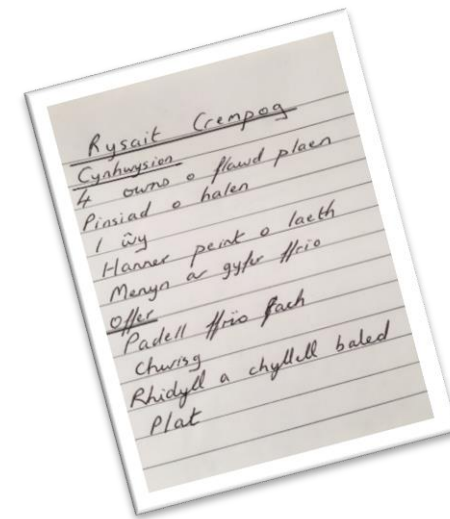 Rysait Crempog
Cynhwysion
4 owns o flawd plaen
Pinsiad o halen
1 ŵy
Hanner peint o laeth
Menyn ar gyfer ffrio
Offer
Padell ffrio fach
Chwisg
Rhidyll a chyllell baled
Plat